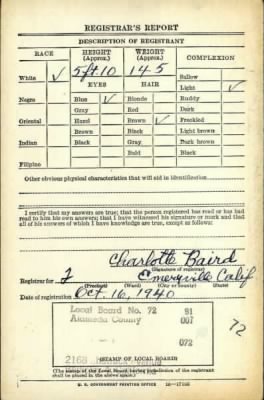 REGISTRAR'S REPORT
DESCRIPTION OF REGISTRANT
RACE HEIGHT (Approx.) WEIGHT (Approx.) COMPLEXION
5 ft. 10 145
White ✓ EYES HAIR Sallow
Light ✓
Negro Blue ✓ Blonde Ruddy
Gray Red Dark
Oriental Hazel Brown ✓ Freckled
Brown Black Light brown
Indian Black Gray Dark brown
Bald Black
Filipino
Other obvious physical characteristics that will aid in identification
I certify that my answers are true; that the person registered has read or has had
read to him his own answers; that I have witnessed his signature or mark and that
all of his answers of which I have knowledge are true, except as follows:
Charlotte Baird
(Signature of registrar)
Registrar for 2 Emeryville Calif
(Precinct) (Ward) (City or county) (State)
Date of registration Oct. 16, 1940
Local Board No. 72 91
Alameda County 007
072
72
2168
(STAMP OF LOCAL BOARD)
(The stamp of the Local Board having jurisdiction of the registrant
shall be placed in the above space)
U. S. GOVERNMENT PRINTING OFFICE